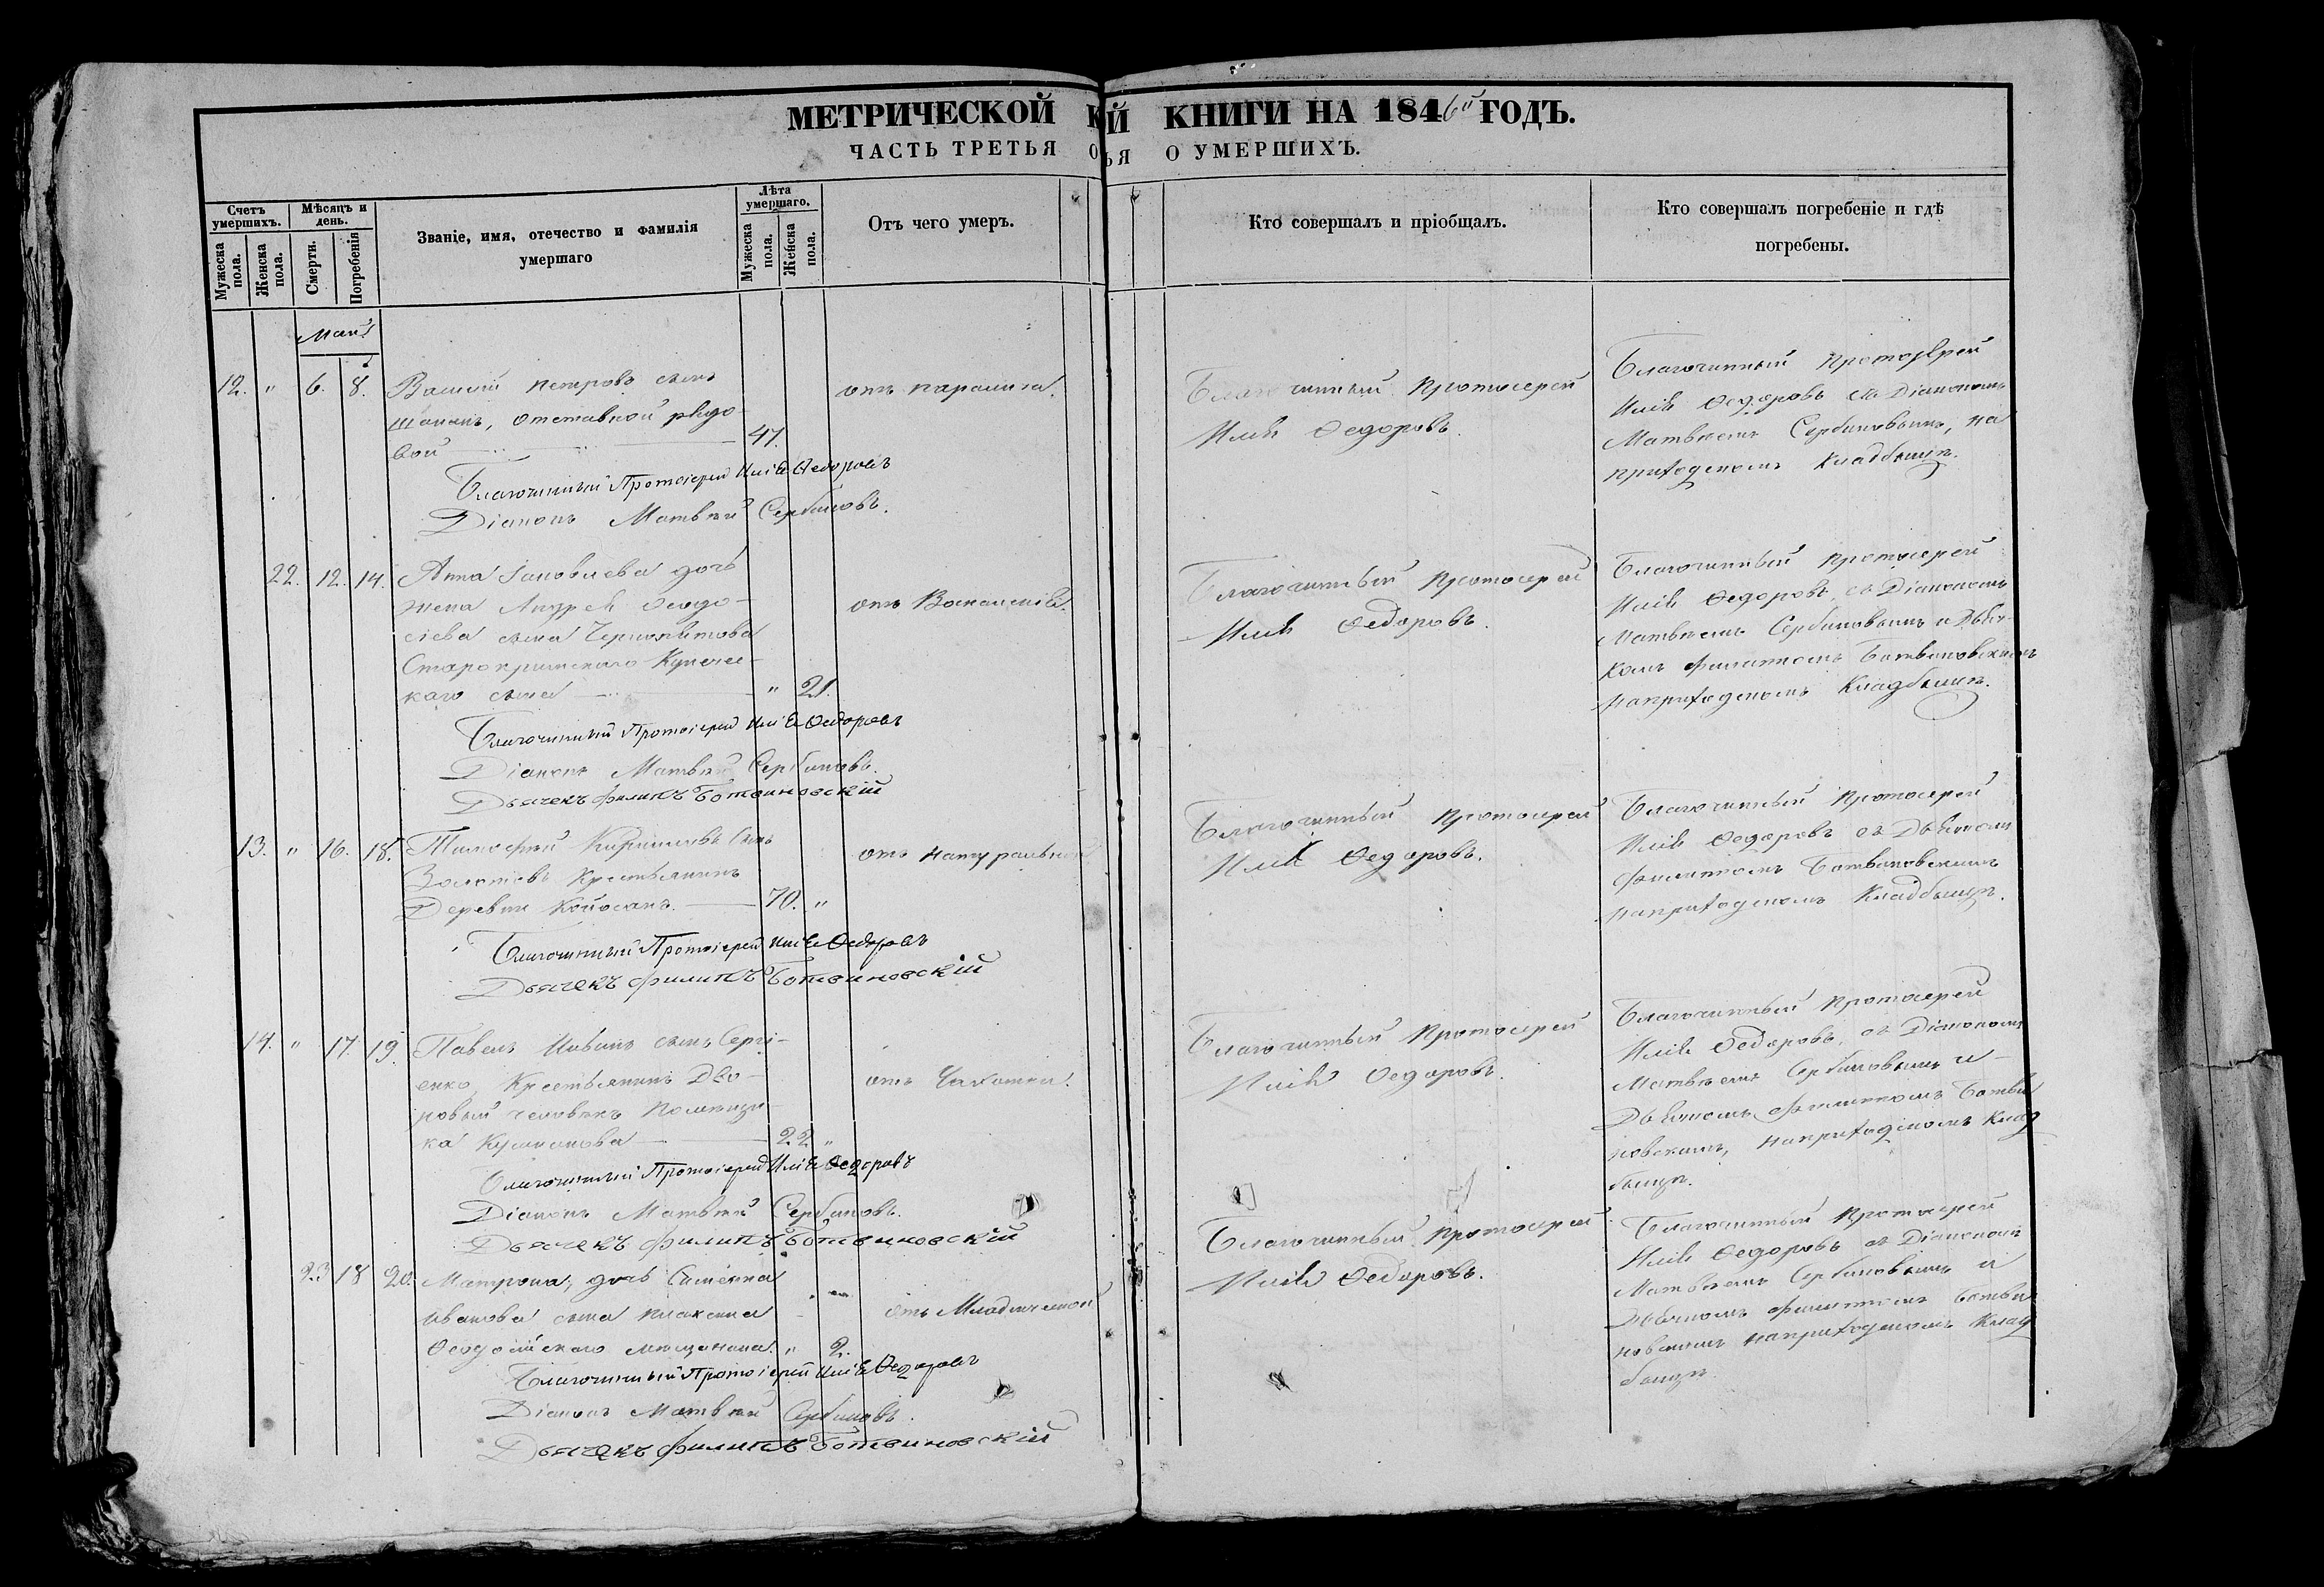 МЕТРИЧЕСКОЙ К
ЧАСТЬ ТРЕТЬЯ О
Счетъ умершихъ.
Мужеска пола.
Женска пола.
Мѣсяцъ и день.
Смерти.
Погребенія
Званіе, имя, отечество и фамилія
умершаго
Лѣта умершаго.
Мужеска пола.
Женска пола.
Отъ чего умеръ.
Май
12. " 6. 8. Василій Петровъ сынъ
отъ паралича.
отставной рядо-
вой 47.
Благочинный Протоіерей Илія Ѳедоровъ
Діаконъ Матвѣй Сербиновъ.
22. 12. 14. Анна Іаковлева дочь
жена Андрея Ѳеодо-
отъ Воспаленія.
сіева сына
Старокрымскаго Купечес-
каго сына " 21.
Благочинный Протоіерей Илія Ѳедоровъ
Діаконъ Матвѣй Сербиновъ.
Дьячекъ Филипъ Ботвиновскій
13. " 16. 18. Тимофей Кириловъ сынъ
отъ натуральной
Золотовъ Крестьянинъ
Деревни 70. "
Благочинный Протоіерей Илія Ѳедоровъ
Дьячекъ Филипъ Ботвиновскій
14. " 17. 19. Павелъ Ивановъ сынъ Сергі-
енко, Крестьянинъ Дво-
отъ Чахотки.
ровый человѣкъ помѣщи-
ка 22 "
Благочинный Протоіерей Илія Ѳедоровъ
Діаконъ Матвѣй Сербиновъ.
Дьячекъ Филипъ Ботвиновскій
23 18 20. Матрона, дочь Симеона
Иванова сына
отъ Младенческой
Ѳеодосійскаго мещанина. " 2.
Благочинный Протоіерей Илія Ѳедоровъ
Діаконъ Матвѣй Сербиновъ.
Дьячекъ Филипъ Ботвиновскій
Й КНИГИ НА 1846й ГОДЪ.
ЬЯ О УМЕРШИХЪ.
Кто совершалъ и пріобщалъ.
Кто совершалъ погребеніе и гдѣ
погребены.
Благочинный Протоіерей
Илія Ѳедоровъ.
Благочинный Протоіерей
Илія Ѳедоровъ съ Діакономъ
Матвѣемъ Сербиновымъ, на
приходскомъ кладбищѣ.
Благочинный Протоіерей
Илія Ѳедоровъ.
Благочинный Протоіерей
Илія Ѳедоровъ, съ Діакономъ
Матвѣемъ Сербиновымъ и Дьяч-
комъ Филиппомъ Ботвиновскимъ
на приходскомъ Кладбищѣ.
Благочинный Протоіерей
Илія Ѳедоровъ.
Благочинный Протоіерей
Илія Ѳедоровъ съ Дьячкомъ
Филиппомъ Ботвиновскимъ
на приходскомъ Кладбищѣ.
Благочинный Протоіерей
Илія Ѳедоровъ.
Благочинный Протоіерей
Илія Ѳедоровъ, съ Діакономъ
Матвѣемъ Сербиновымъ и
Дьячкомъ Филиппомъ Ботви
новскимъ, на приходскомъ Клад
бищѣ.
Благочинный Протоіерей
Илія Ѳедоровъ.
Благочинный Протоіерей
Илія Ѳедоровъ съ Діакономъ
Матвѣемъ Сербиновымъ и
Дьячкомъ Филиппомъ Ботви
новскимъ на приходскомъ Клад
бищѣ